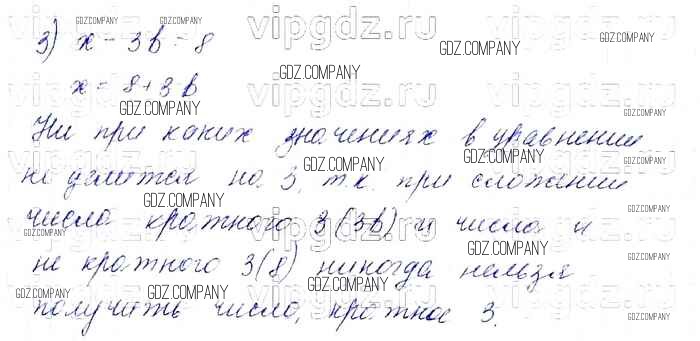 3) x - 3b = 8
x = 8 + 3b
Ни при каких значениях b уравнении
не делится на 3, т.к. при сложении
числа кратного 3 (3b) и числа и
не кратного 3 (8) никогда нельзя
получить число, кратное 3.
vipgdz.ru
GDZ.COMPANY